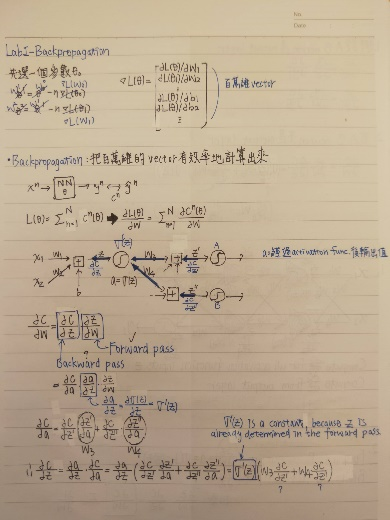 No.
Date
Lab1-Backpropagation
先選一個參數θ₀
▽L(θ) = [∂L(θ)/∂w₁ ∂L(θ)/∂w₂ ⋮ ∂L(θ)/∂b₁ ∂L(θ)/∂b₂ ⋮] 百萬維 vector
• Backpropagation: 把百萬維的 vector 有效率地計算出來
xⁿ → NN θ → yⁿ ↔ ŷⁿ
Cⁿ
L(θ) = Σₙ₌₁ᴺ Cⁿ(θ) ➡ ∂L(θ)/∂w = Σₙ₌₁ᴺ ∂Cⁿ(θ)/∂w
σ(z)
x₁ w₁ + z ∂C/∂z w₃ + z' ∂C/∂z' A
x₂ w₂ b a=σ(z) w₄ + z'' ∂C/∂z'' B
activation func.
∂C/∂w = ∂C/∂z ∂z/∂w
Forward pass
Backward pass
= ∂C/∂a ∂a/∂z ∂z/∂w
∂a/∂z = ∂σ(z)/∂z = σ'(z)
∂C/∂a = ∂C/∂z' ∂z'/∂a + ∂C/∂z'' ∂z''/∂a
w₃ w₄
σ'(z) is a constant, because z is
already determined in the forward pass.
∴ ∂C/∂z = ∂a/∂z · ∂C/∂a = ∂a/∂z (∂C/∂z' ∂z'/∂a + ∂C/∂z'' ∂z''/∂a) = σ'(z) (w₃ ∂C/∂z' + w₄ ∂C/∂z'')
? ?